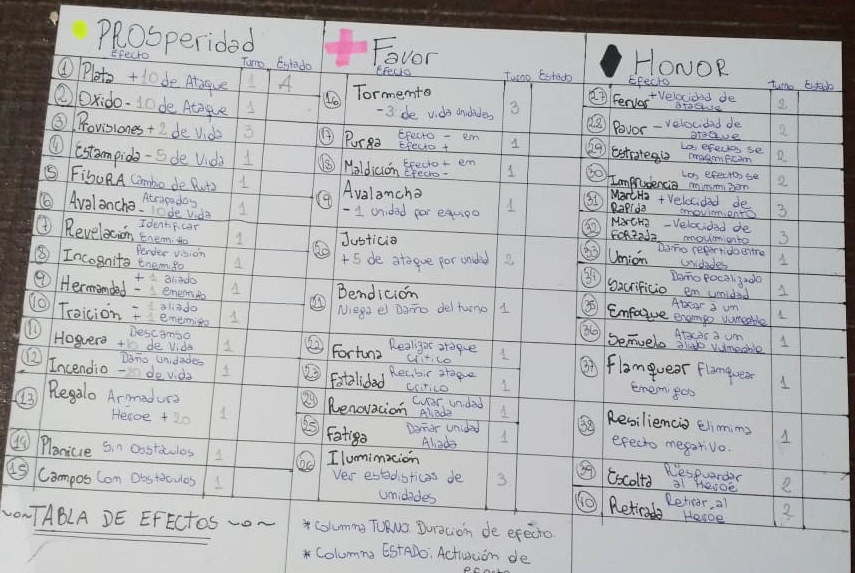 PROSperidad
Efecto Turno Estado
1 Plata +10 de Ataque 1 A
2 Oxido -10 de Ataque 1
3 Provisiones +2 de Vida 3
4 Estampida -5 de Vida 1
5 FisuRA Cambio de Ruta 1
6 Avalancha Atrapados
-10 de vida 1
7 Revelación Identificar
Enemigo 1
8 Incognita Perder visión
Enemigo 1
9 Hermandad +1 aliado
-1 enemigo 1
10 Traición -1 aliado
+1 enemigo 1
11 Hoguera Descanso
+10 de vida 1
12 Incendio Daño unidades
-20 de vida 1
13 Regalo Armadura
Héroe +20 1
14 Planicie Sin obstáculos 1
15 Campos Con Obstáculos 1
~o~TABLA DE EFECTOS ~o~
Favor
Efecto Turno Estado
16 Tormento
-3 de vida unidades 3
17 Purga Efecto - en
Efecto + 1
18 Maldición Efecto + en
Efecto - 1
19 Avalancha
-1 unidad por equipo 1
20 Justicia
+5 de ataque por unidad 2
21 Bendición
Niega el Daño del turno 1
22 Fortuna Realizar ataque
Crítico 1
23 Fatalidad Recibir ataque
Crítico 1
24 Renovación Curar unidad
Aliada 1
25 Fatiga Dañar unidad
Aliada 1
26 Iluminación
Ver estadísticas de
unidades 3
* Columna TURNO: Duración de efecto
* Columna ESTADO: Activación de
efecto
HONOR
Efecto Turno Estado
27 Fervor +Velocidad de
ataque 2
28 Pavor -velocidad de
ataque 2
29 Estrategia Los efectos se
magnifican 2
30 Imprudencia Los efectos se
minimizan 2
31 Marcha Rapida +Velocidad de
movimiento 3
32 Marcha FoRzada -Velocidad de
movimiento 3
33 Union Daño repartido entre
unidades 1
34 Sacrificio Daño focalizado
en unidad 1
35 Enfoque Atacar a un
enemigo vulnerable 1
36 Señuelo Atacar a un
aliado vulnerable 1
37 Flanquear Flanquear
Enemigos 1
38 Resiliencia Elimina
efecto negativo. 1
39 Escolta Resguardar
al Heroe 2
40 Retirada Retirar al
Heroe 2